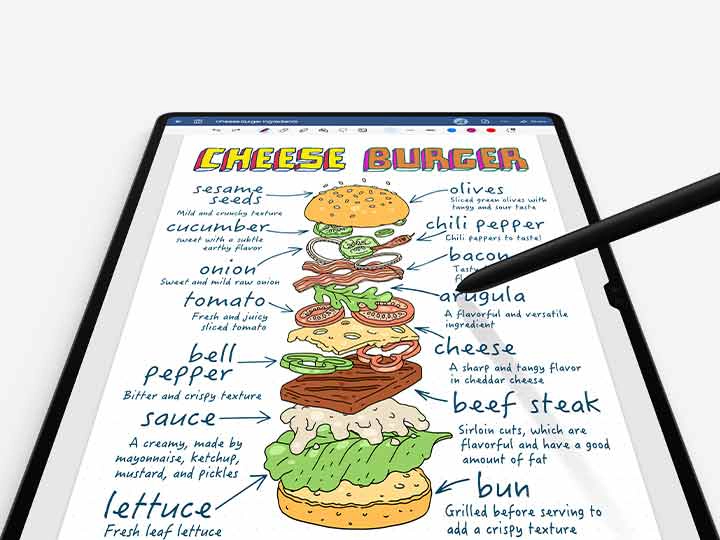 Cheese Burger Ingredients
Share
CHEESE BURGER
sesame
seeds
Mild and crunchy texture
cucumber
sweet with a subtle
earthy flavor
onion
Sweet and mild raw onion
tomato
Fresh and juicy
sliced tomato
bell
pepper
Bitter and crispy texture
sauce
A creamy, made by
mayonnaise, ketchup,
mustard, and pickles
lettuce
Fresh leaf lettuce
olives
Sliced green olives with
tangy and sour taste
chili pepper
Chili peppers to taste!
bacon
arugula
A flavorful and versatile
ingredient
cheese
A sharp and tangy flavor
in cheddar cheese
beef steak
Sirloin cuts, which are
flavorful and have a good
amount of fat
bun
Grilled before serving to
add a crispy texture